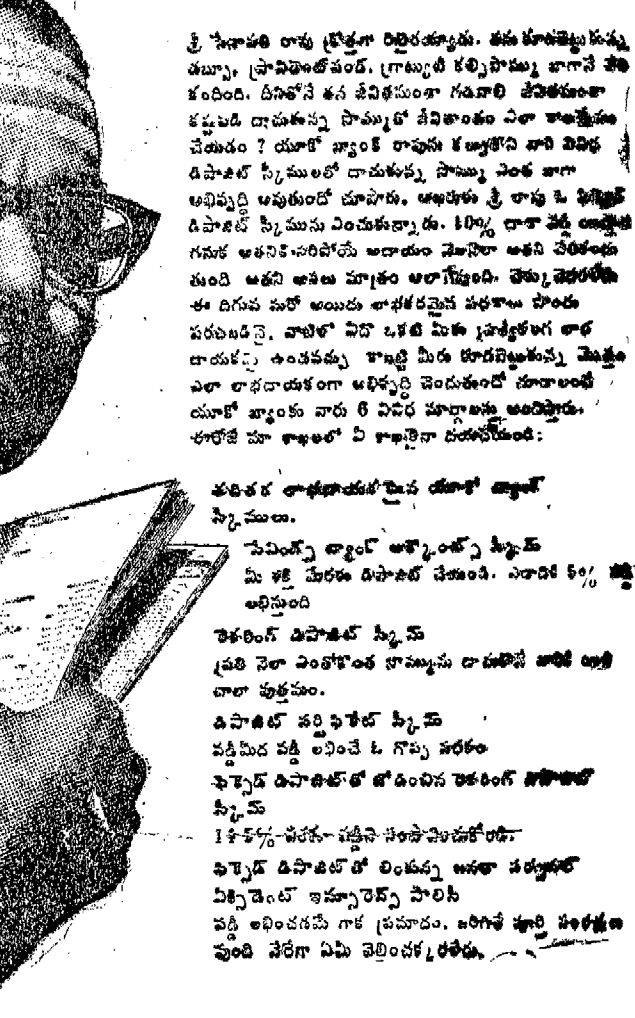 శ్రీ సేనాపతి రావు క్రొత్తగా రిటైరయ్యాడు. తను కూడబెట్టుకున్న
డబ్బూ, ప్రావిడెంట్‌ఫండ్, గ్రాట్యుటి కల్పిసొమ్ము బాగానే చేతి
కందింది. దీనితోనే తన జీవితమంతా గడవాలి జీవితమంతా
కష్టపడి దాచుకున్న సొమ్ముతో జీవితాంతం ఎలా కాలక్షేపం
చేయడం ? యూకో బ్యాంక్ రావును కలుసుకొని వారి వివిధ
డిపాజిట్ స్కీములలో దాచుకున్న సొమ్ము ఎంత బాగా
అభివృద్ధి అవుతుందో చూపారు. ఆఖరుకు శ్రీ రావు ఓ ఫిక్సెడ్
డిపాజిట్ స్కీమును ఎంచుకున్నాడు. 10% దాకా వడ్డీ
గనుక అతనికి సరిపోయే ఆదాయం నెలనెలా అతని చేతికందు
తుంది అతని అసలు మాత్రం అలాగేవుంది.
ఈ దిగువ మరో అయిదు లాభకరమైన పథకాలు పొందు
పరచబడినై, వాటిలో ఏదో ఒకటి మీకు ప్రత్యేకంగ లాభ
దాయకమై ఉండవచ్చు కాబట్టి మీరు కూడబెట్టుకున్న మొత్తం
ఎలా లాభదాయకంగా అభివృద్ధి చెందుతుందో చూడాలంటే
యూకో బ్యాంకు వారు 6 వివిధ మార్గాలను అందిస్తారు.
ఈరోజే మా శాఖలలో ఏ శాఖకైనా దయచేయండి:
ఇతర లాభదాయకమైన యూకో బ్యాంక్
స్కీములు.
సేవింగ్స్ బ్యాంక్ అక్కౌంట్స్ స్కీమ్
మీ శక్తి మేరకు డిపాజిట్ చేయండి. ఎడాదికి 5% వడ్డీ
లభిస్తుంది
రెకరింగ్ డిపాజిట్ స్కీమ్
ప్రతి నెలా ఎంతోకొంత సొమ్మును దాచుకొనే వారికి ఇది
చాలా వుత్తమం.
డిపాజిట్ సర్టిఫికేట్ స్కీమ్
వడ్డీమీద వడ్డీ లభించే ఓ గొప్ప పథకం
ఫిక్సెడ్ డిపాజిట్‌తో జోడించిన రెకరింగ్ డిపాజిట్
స్కీమ్
వరకూ వడ్డీని సంపాదించుకోండి.
ఫిక్సెడ్ డిపాజిట్‌తో లింకున్న జనతా పర్సనల్
ఏక్సిడెంట్ ఇన్సూరెన్స్ పాలిసీ
వడ్డీ లభించడమే గాక ప్రమాదం. జరిగితే పూర్తి సంరక్షణ
వుంది వేరేగా ఏమీ చెల్లించక్కరలేదు.